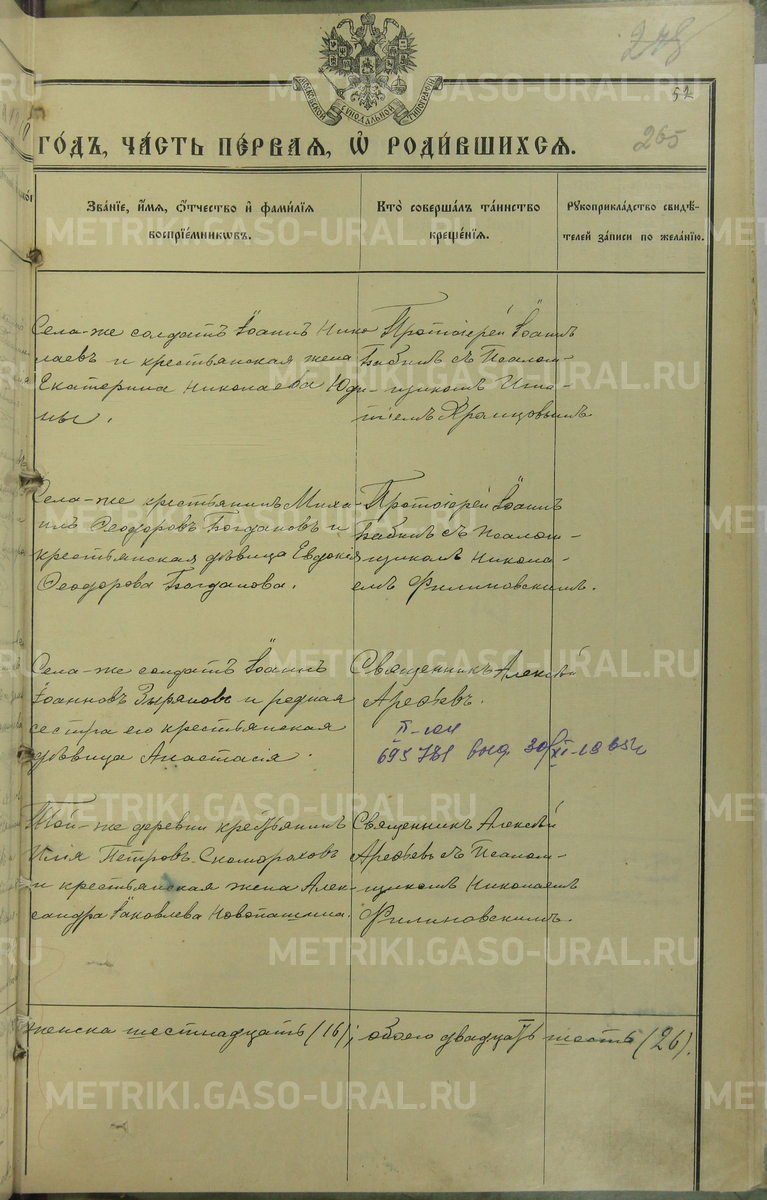 278
52
265
МОСКОВСКОЙ СѴНОДАЛЬНОЙ ТИПОГРАФІИ
ГО́ДЪ, ЧА́СТЬ ПЕ́РВАЯ, Ѡ҆ РОДИ́ВШИХСЯ.
Зва́нїе, и҆́мѧ, ѻ҆́тчество и҆ фамилїѧ
воспрїе́мникѡвъ.
Кто̀ соверша́лъ та́инство
креще́нїѧ.
Рꙋкоприкла́дство свидѣ́-
телей за́писи по жела́нїю.
Села-же солдатъ Іоаннъ Нико
лаевъ и крестьянская жена
Екатерина Николаева Юди
ны.
Протоіерей Іоаннъ
Бабинъ съ Псалом-
щикомъ Игна-
тіемъ Хромцовымъ
Села-же крестьянинъ Миха-
илъ Ѳеодоровъ Богдановъ и
крестьянская дѣвица Евдокія
Ѳеодорова Богданова.
Протоіерей Іоаннъ
Бабинъ съ Псалом-
щикомъ Никола-
емъ Филиновскимъ.
Села-же солдатъ Іоаннъ
Іоанновъ Зыряновъ и родная
сестра его крестьянская
дѣвица Анастасія.
Священникъ Алексѣй
Арефьевъ.
695781 выд 30/XI-1965г
Той-же деревни крестьянинъ
Илія Петровъ Скоморохов
и крестьянская жена Алек-
сандра Іаковлева Новопашина.
Священникъ Алексѣй
Арефьевъ съ Псалом-
щикомъ Николаемъ
Филиновскимъ.
женска шестнадцать (16); обоего двадцать шесть (26).
METRIKI.GASO-URAL.RU